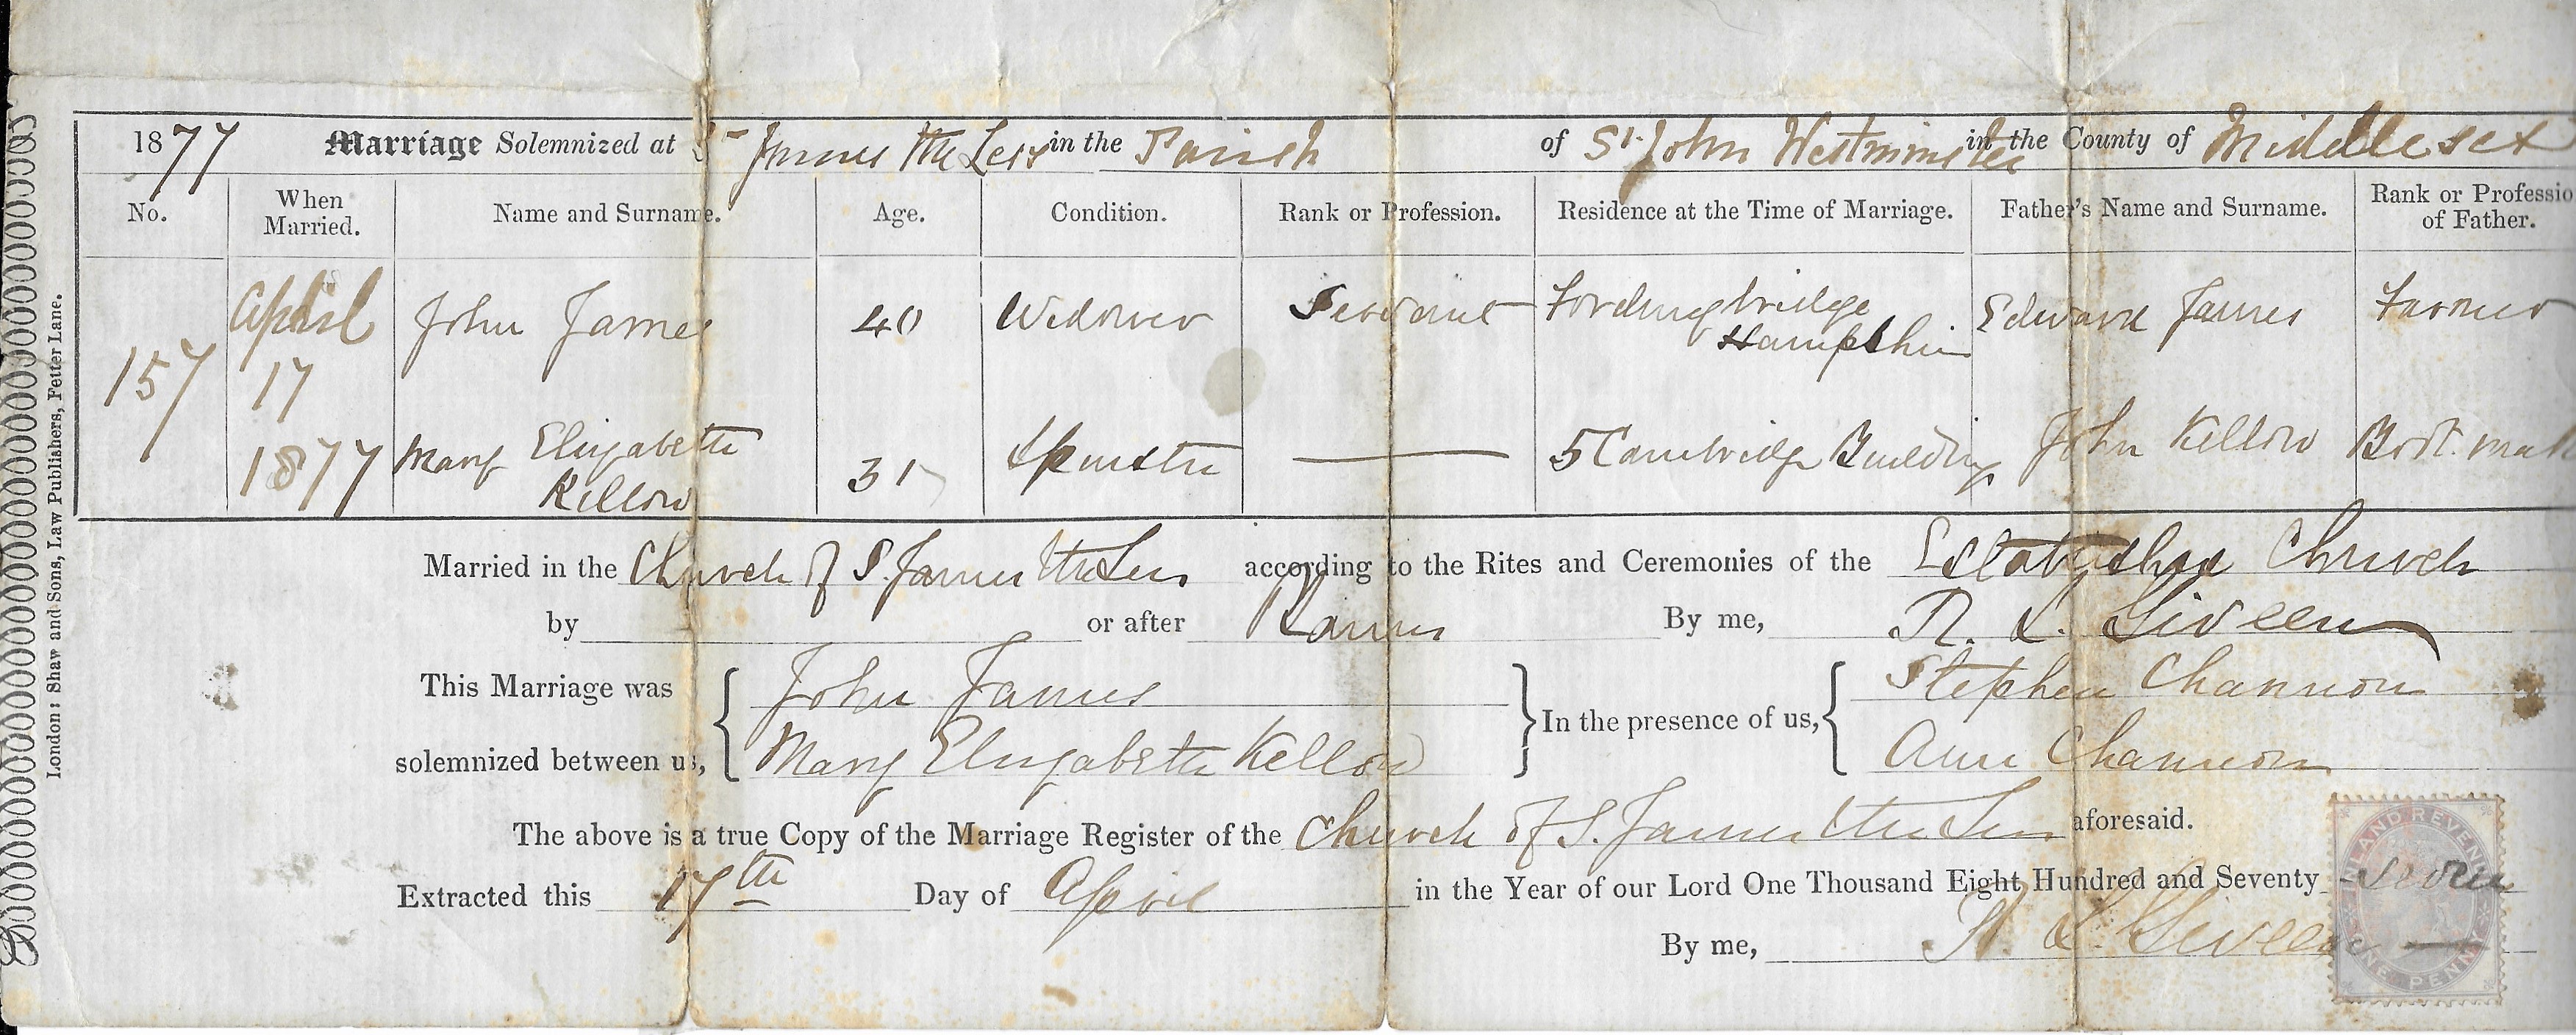 1877 Marriage Solemnized at St James the Less in the Parish of St. John Westminster in the County of Middlesex
No. When Married. Name and Surname. Age. Condition. Rank or Profession. Residence at the Time of Marriage. Father's Name and Surname. Rank or Professio of Father.
157 April 17 1877 John James 40 Widower Servant Fordingbridge Hampshire Edward James Farmer
Mary Elizabeth Kellow 31 Spinster 5 Cambridge Buildings John Kellow Boot mak
Married in the Church of S. James the Less according to the Rites and Ceremonies of the Established Church
by or after Banns By me, L.
This Marriage was solemnized between us, John James In the presence of us, Stephen Channon
Mary Elizabeth Kellow Ann Channon
The above is a true Copy of the Marriage Register of the Church of S. James the Less aforesaid.
Extracted this 17th Day of April in the Year of our Lord One Thousand Eight Hundred and Seventy seven
By me, L.
London: Shaw and Sons, Law Publishers, Fetter Lane.
INLAND REVENUE
ONE PENNY